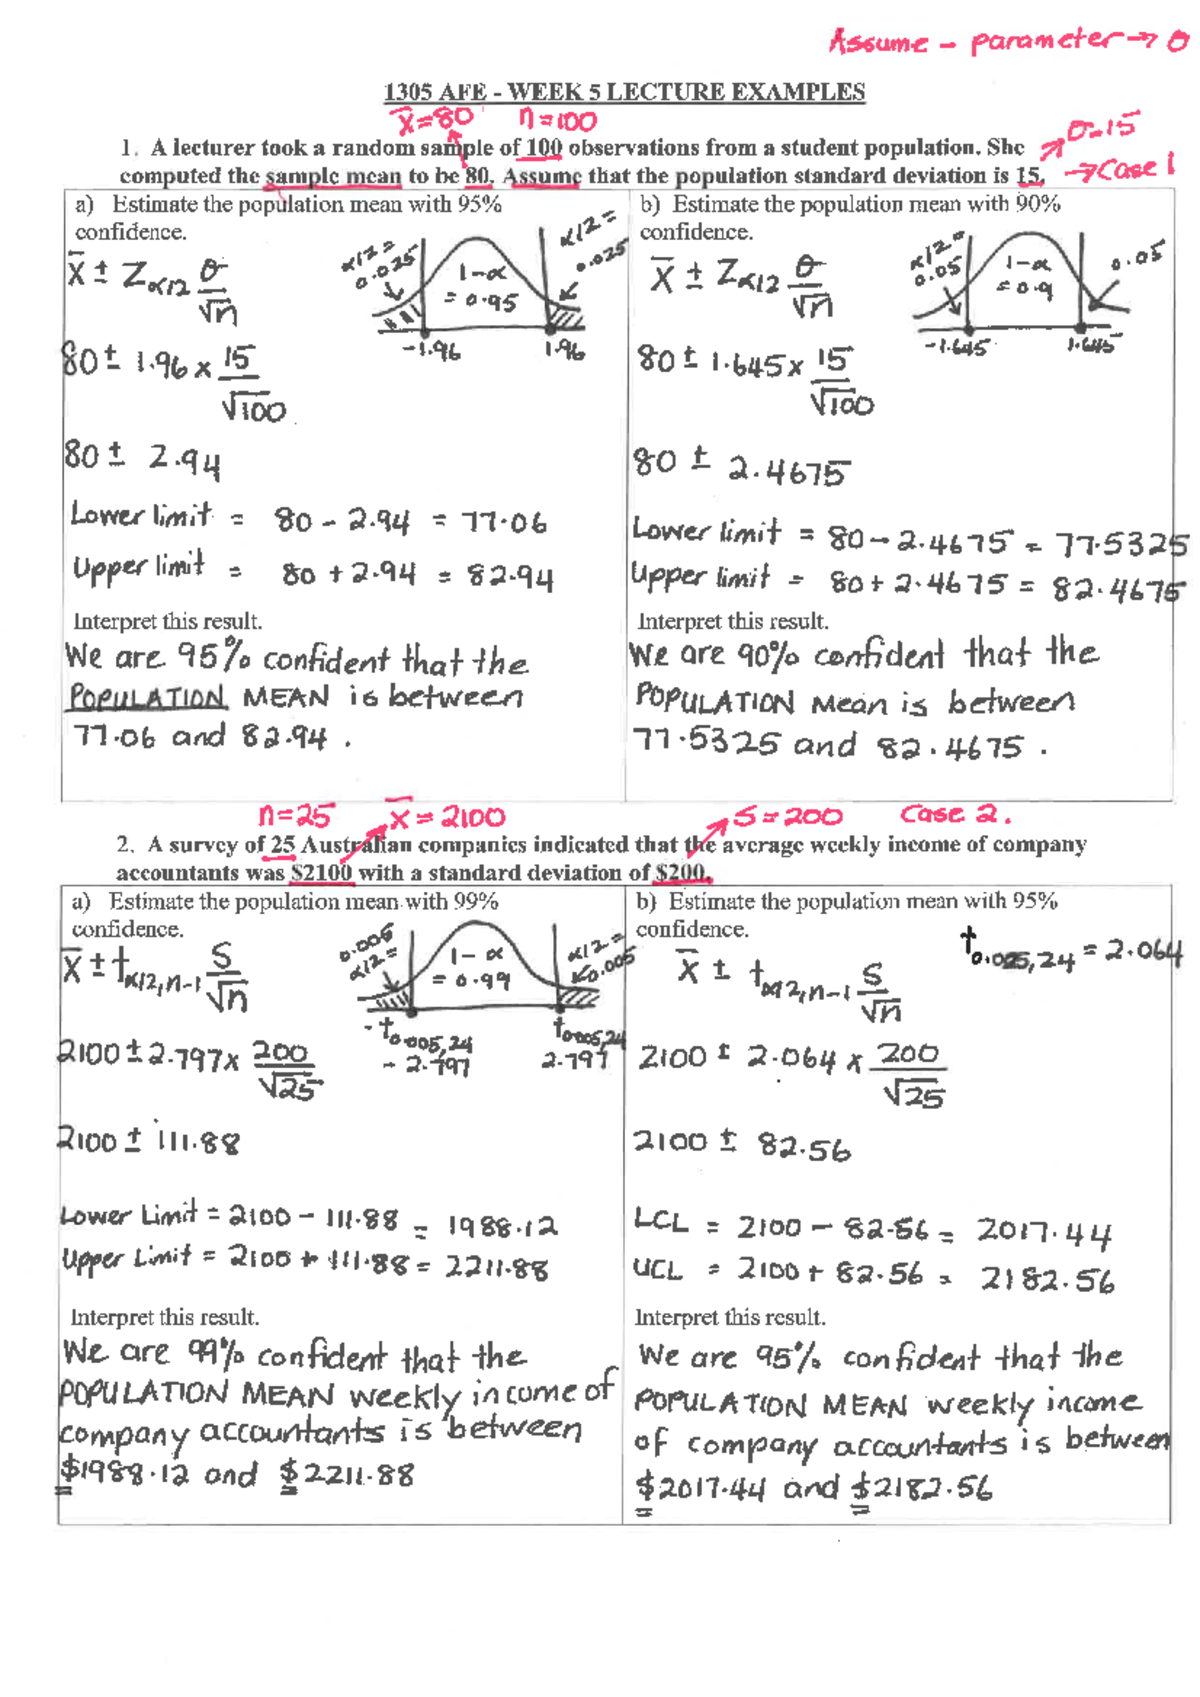 Assume - parameter → σ
1305 AFE - WEEK 5 LECTURE EXAMPLES
x̄=80 n=100
σ=15
1. A lecturer took a random sample of 100 observations from a student population. She
computed the sample mean to be 80. Assume that the population standard deviation is 15.
→ Case 1
a) Estimate the population mean with 95%
confidence.
α/2 = 0.025
1-α = 0.95
α/2 = 0.025
-1.96 1.96
x̄ ± Zα/2 σ/√n
80 ± 1.96 x 15/√100
80 ± 2.94
Lower limit = 80 - 2.94 = 77.06
Upper limit = 80 + 2.94 = 82.94
Interpret this result.
We are 95% confident that the
POPULATION MEAN is between
77.06 and 82.94 .
b) Estimate the population mean with 90%
confidence.
α/2 = 0.05
1-α = 0.9
0.05
-1.645 1.645
x̄ ± Zα/2 σ/√n
80 ± 1.645 x 15/√100
80 ± 2.4675
Lower limit = 80 - 2.4675 = 77.5325
Upper limit = 80 + 2.4675 = 82.4675
Interpret this result.
We are 90% confident that the
POPULATION Mean is between
77.5325 and 82.4675 .
n=25 x̄ = 2100 S = 200 Case 2.
2. A survey of 25 Australian companies indicated that the average weekly income of company
accountants was $2100 with a standard deviation of $200.
a) Estimate the population mean with 99%
confidence.
0.005
α/2 =
1-α = 0.99
α/2 = 0.005
-t0.005,24 t0.005,24
-2.797 2.797
x̄ ± tα/2,n-1 S/√n
2100 ± 2.797 x 200/√25
2100 ± 111.88
Lower Limit = 2100 - 111.88 = 1988.12
Upper Limit = 2100 + 111.88 = 2211.88
Interpret this result.
We are 99% confident that the
POPULATION MEAN weekly income of
company accountants is between
$1988.12 and $2211.88
b) Estimate the population mean with 95%
confidence.
t0.025,24 = 2.064
x̄ ± tα/2,n-1 S/√n
2100 ± 2.064 x 200/√25
2100 ± 82.56
LCL = 2100 - 82.56 = 2017.44
UCL = 2100 + 82.56 = 2182.56
Interpret this result.
We are 95% confident that the
POPULATION MEAN weekly income
of company accountants is between
$2017.44 and $2182.56